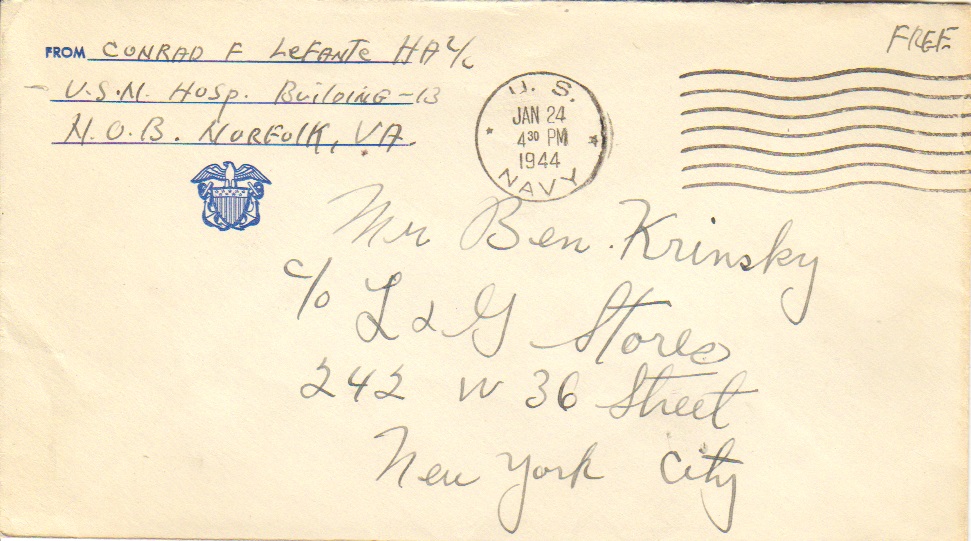 FROM CONRAD F LeFANTe HA 2/c
U.S.N. Hosp. Building -13
N.O.B. Norfolk, VA.
FREE
U. S.
JAN 24
4 30 PM
1944
NAVY
Mr Ben Krinsky
c/o L & G Stores
242 W 36 Street
New York City